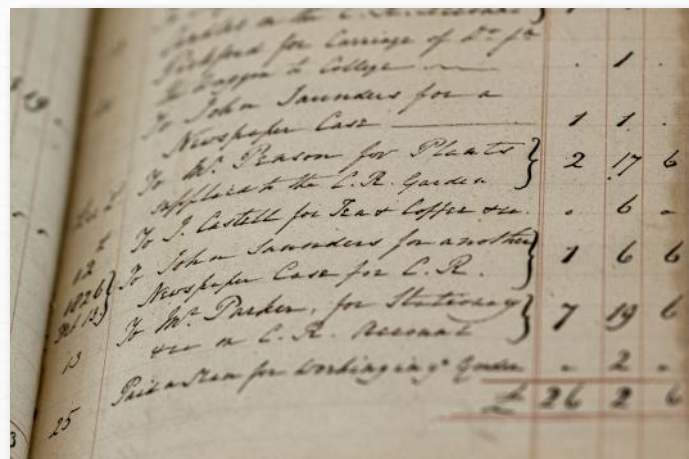 Pickford for Carriage of Do. fm
the Waggon to College . 1 .
To John Saunders for a
Newspaper Case 1 1 .
To Mr. Pearson for Plants } 2 17 6
supplied to the C.R. Garden
12 To J. Castell for Tea & Coffee &c. . 6 .
1826 To John Saunders for another } 1 6 6
Feb 13 Newspaper Case for C.R.
13 To Mr. Parker, for Stationery } 7 19 6
&c on C.R. Account
25 Paid a Man for working in ye Garden . 2 .
£ 26 2 6